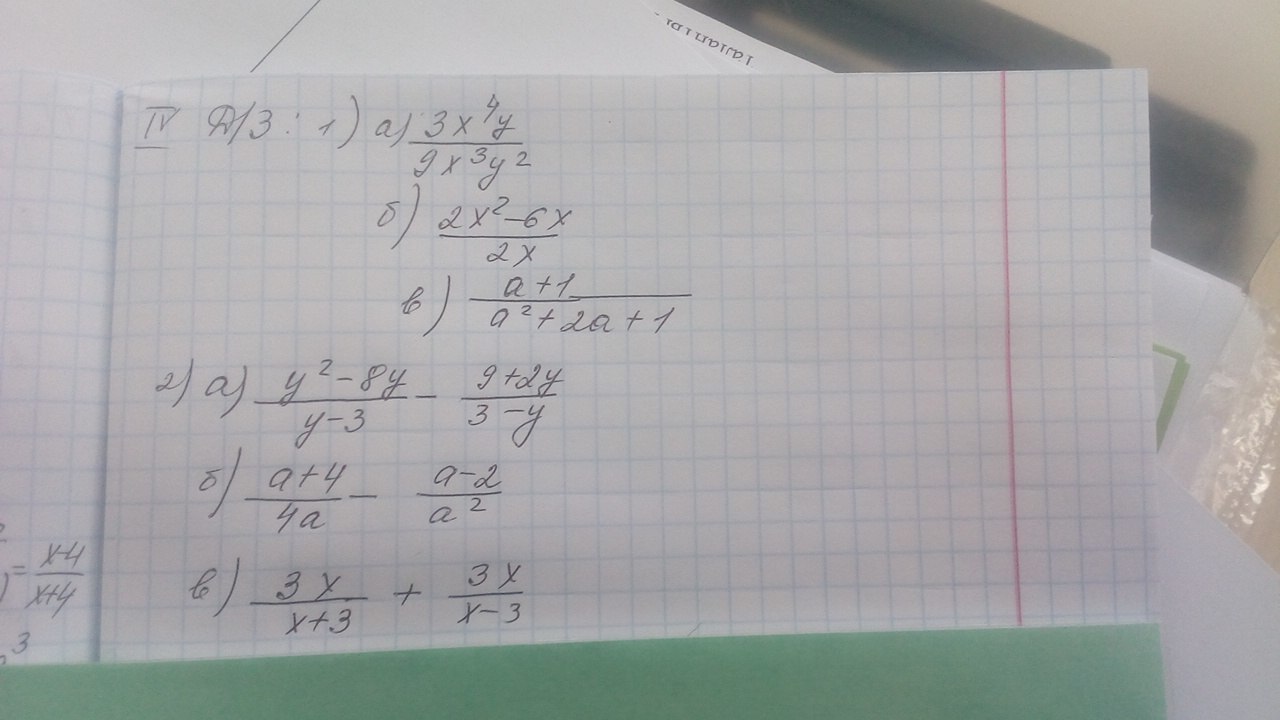 IV Д/З: 1) а) 3x⁴y / 9x³y²
б) 2x² – 6x / 2x
в) a + 1 / a² + 2a + 1
2) а) y² – 8y / y – 3 – 9 + 2y / 3 – y
б) a + 4 / 4a – a – 2 / a²
в) 3x / x + 3 + 3x / x – 3
= x-4 / x+4
3